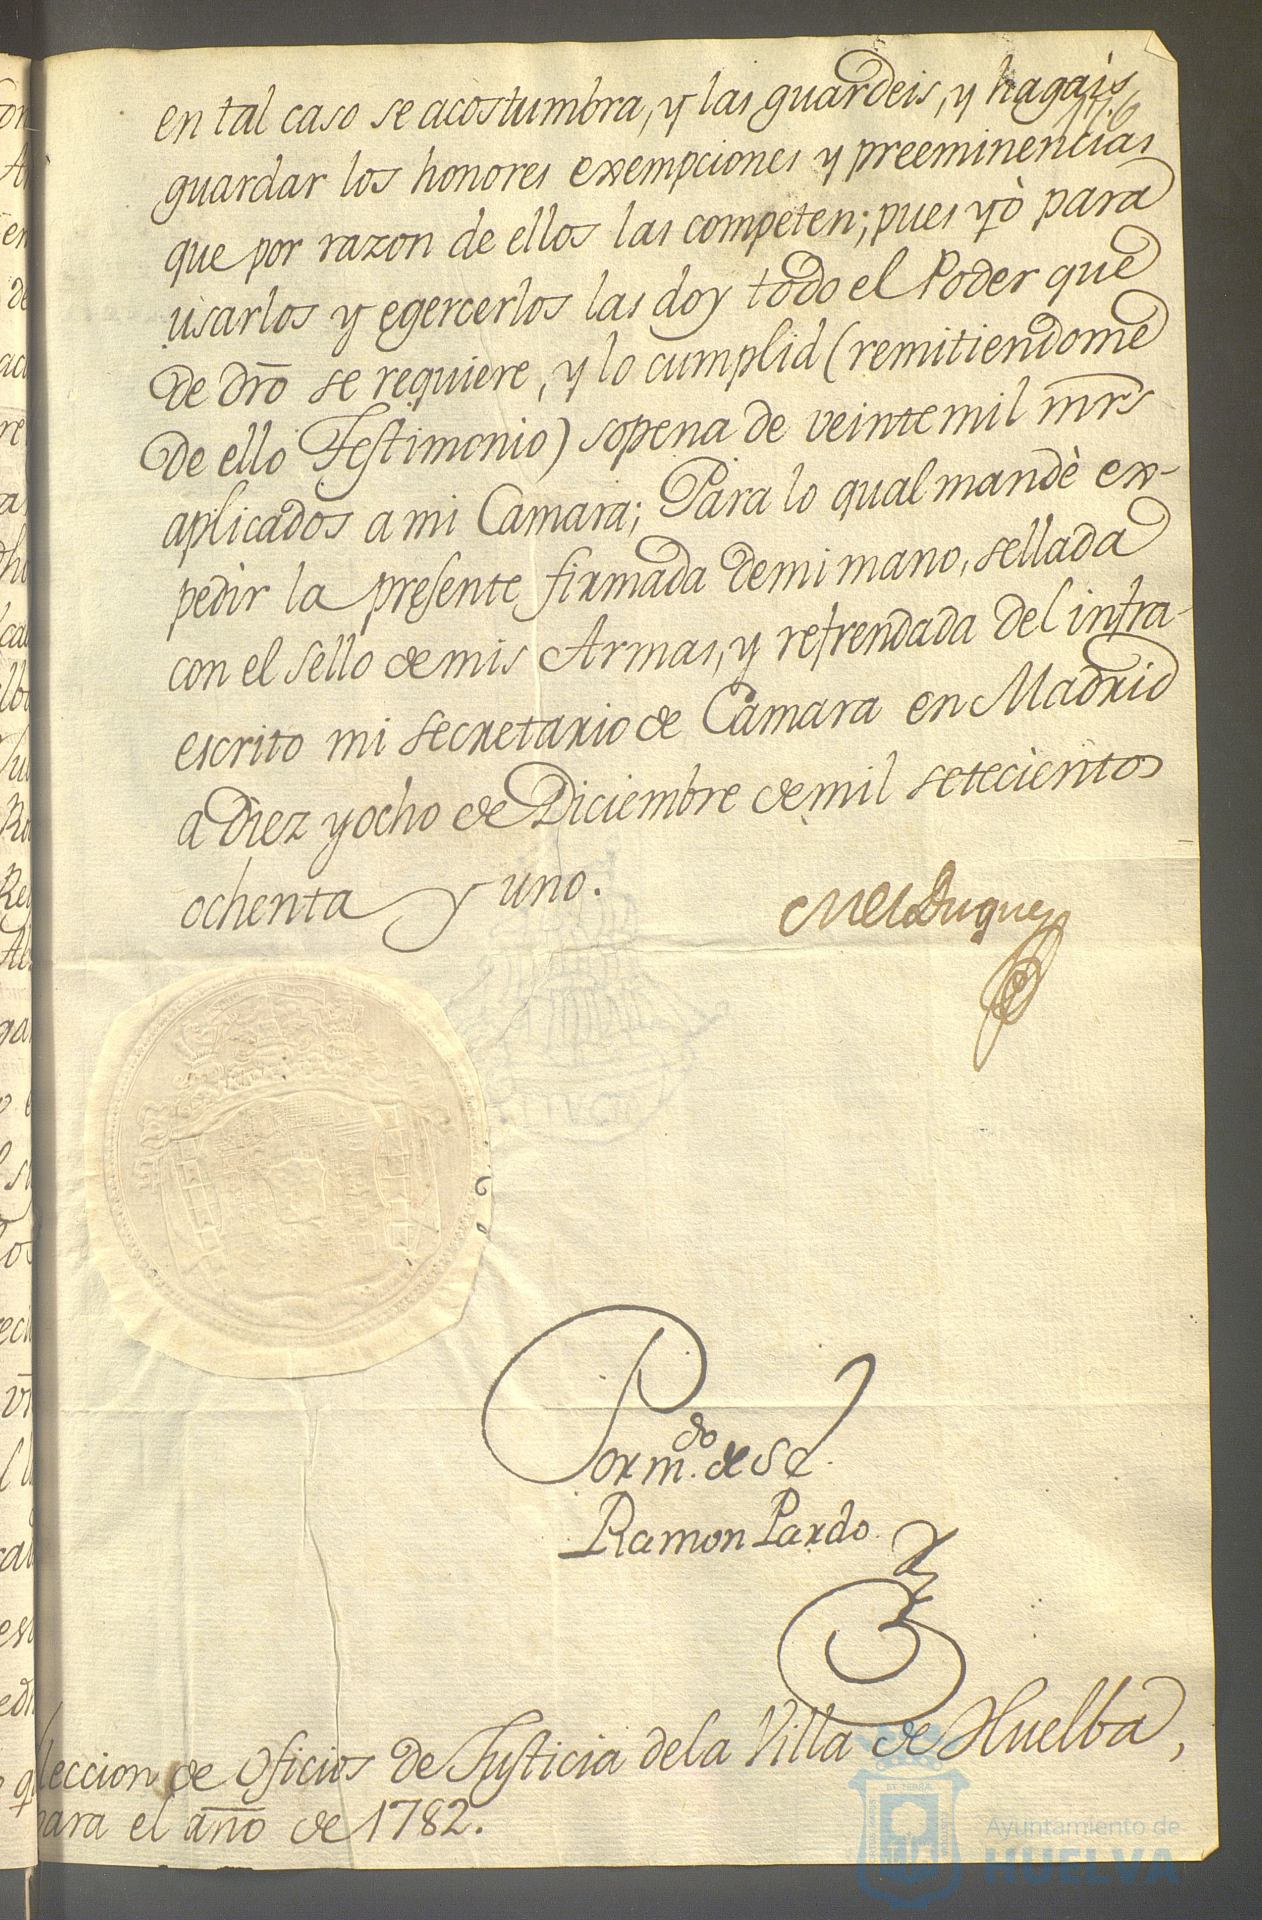 en tal caso se acostumbra, y las guardeis, y hagais
guardar los honores exempciones y preeminencias
que por razon de ellos las competen; pues yò para
usarlos y egercerlos las doy todo el Poder que
de dro se requiere, y lo cumplid (remitiendome
de ello Testimonio) sopena de veinte mil mrs
aplicados a mi Camara; Para lo qual mandè ex-
pedir la presente firmada de mi mano, sellada
con el sello de mis Armas, y refrendada del infra-
escrito mi secretario de Camara en Madrid
a Diez y ocho de Diciembre de mil setecientos
ochenta y uno.
El Duque
Por mdo. de S E.
Ramon Pardo
leccion de Oficios de Justicia de la Villa de Huelba,
para el año de 1782.
Ayuntamiento de
HUELVA